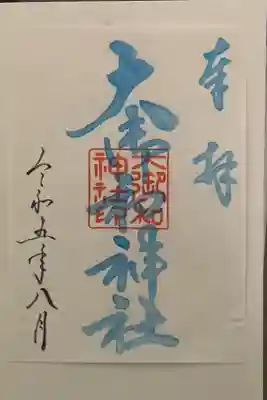 奉拝
大御和神社
大御和
神社
令和五年八月